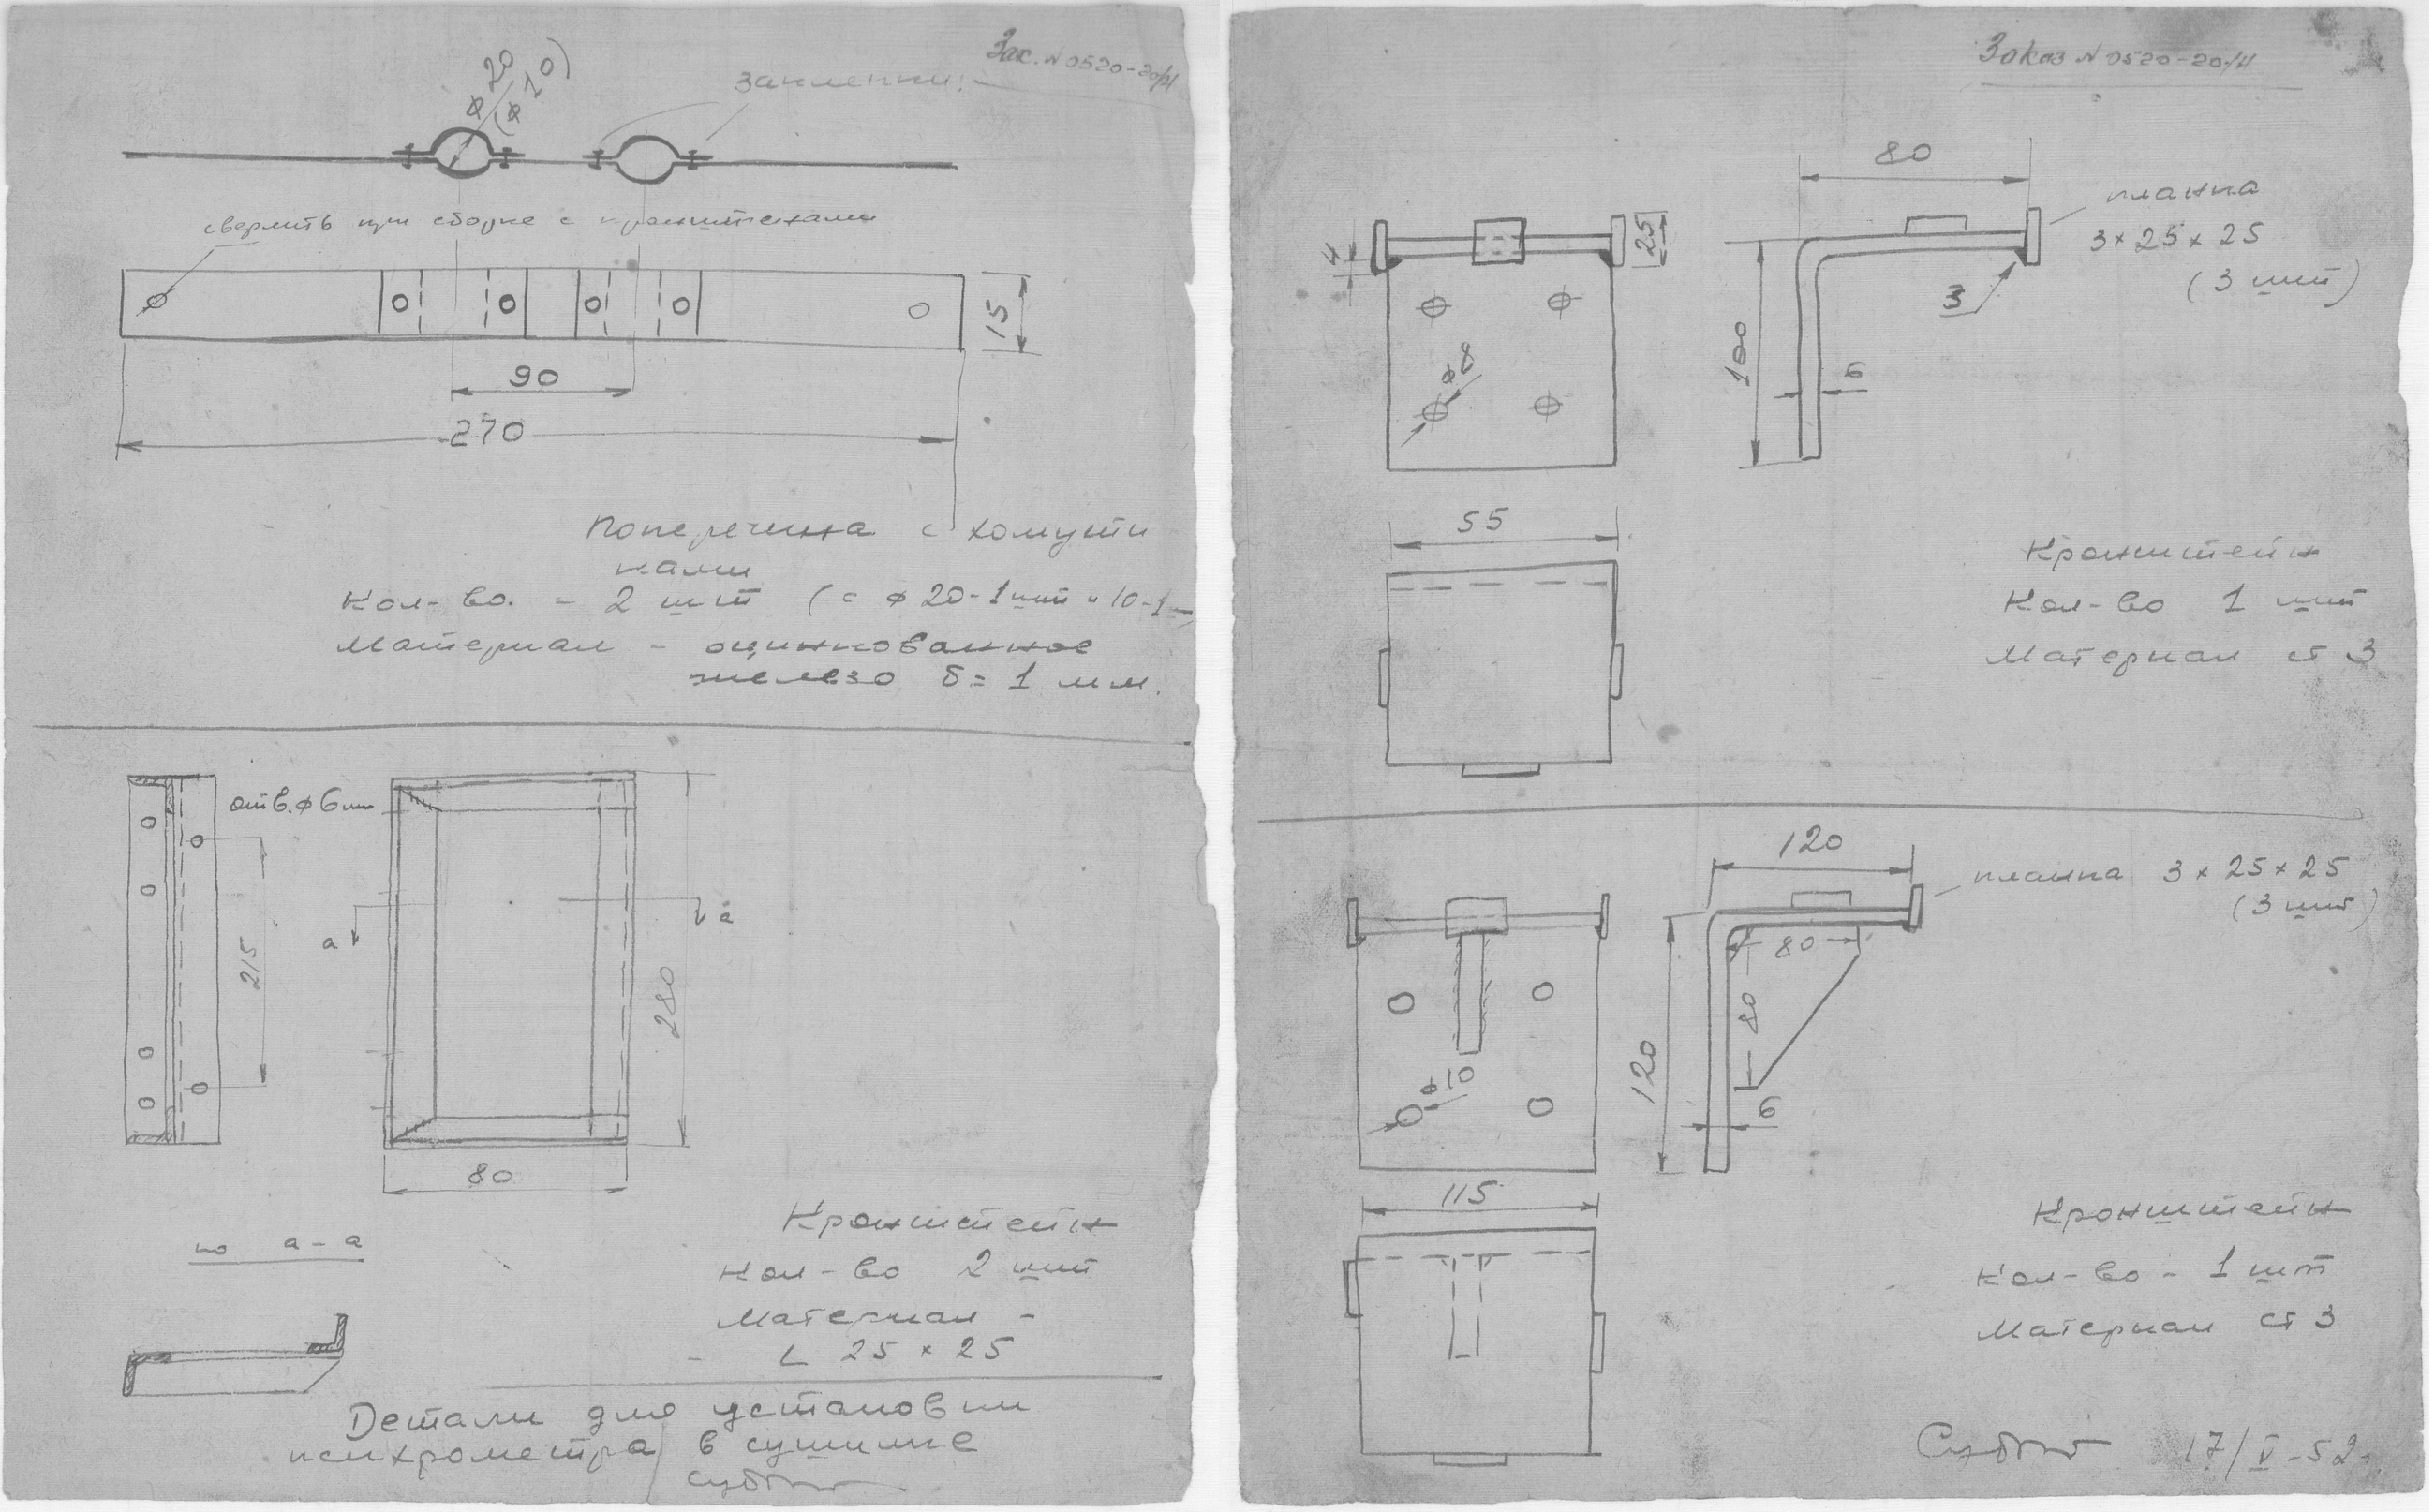 Зак. N 0520-20/И
ф 20
(ф 10)
заклепки
сверлить при сборке с кронштейнами
15
90
270
Поперечина с хомути
ками
Кол-во. - 2 шт (с ф 20-1 шт и 10-1
Материал - оцинкованное
железо δ= 1 мм.
отв. ф 6 мм
215
а
а
280
80
по а-а
Кронштейн
Кол-во 2 шт
Материал -
L 25 x 25
Детали для установки
психрометра в сушилке
Заказ N 0520-20/И
80
планка
3 x 25 x 25
(3 шт)
25
4
3
100
6
ф 8
55
Кронштейн
Кол-во 1 шт
Материал ст 3
120
планка 3 x 25 x 25
(3 шт)
80
80
120
ф 10
6
115
Кронштейн
Кол-во - 1 шт
Материал ст 3
17/V-52